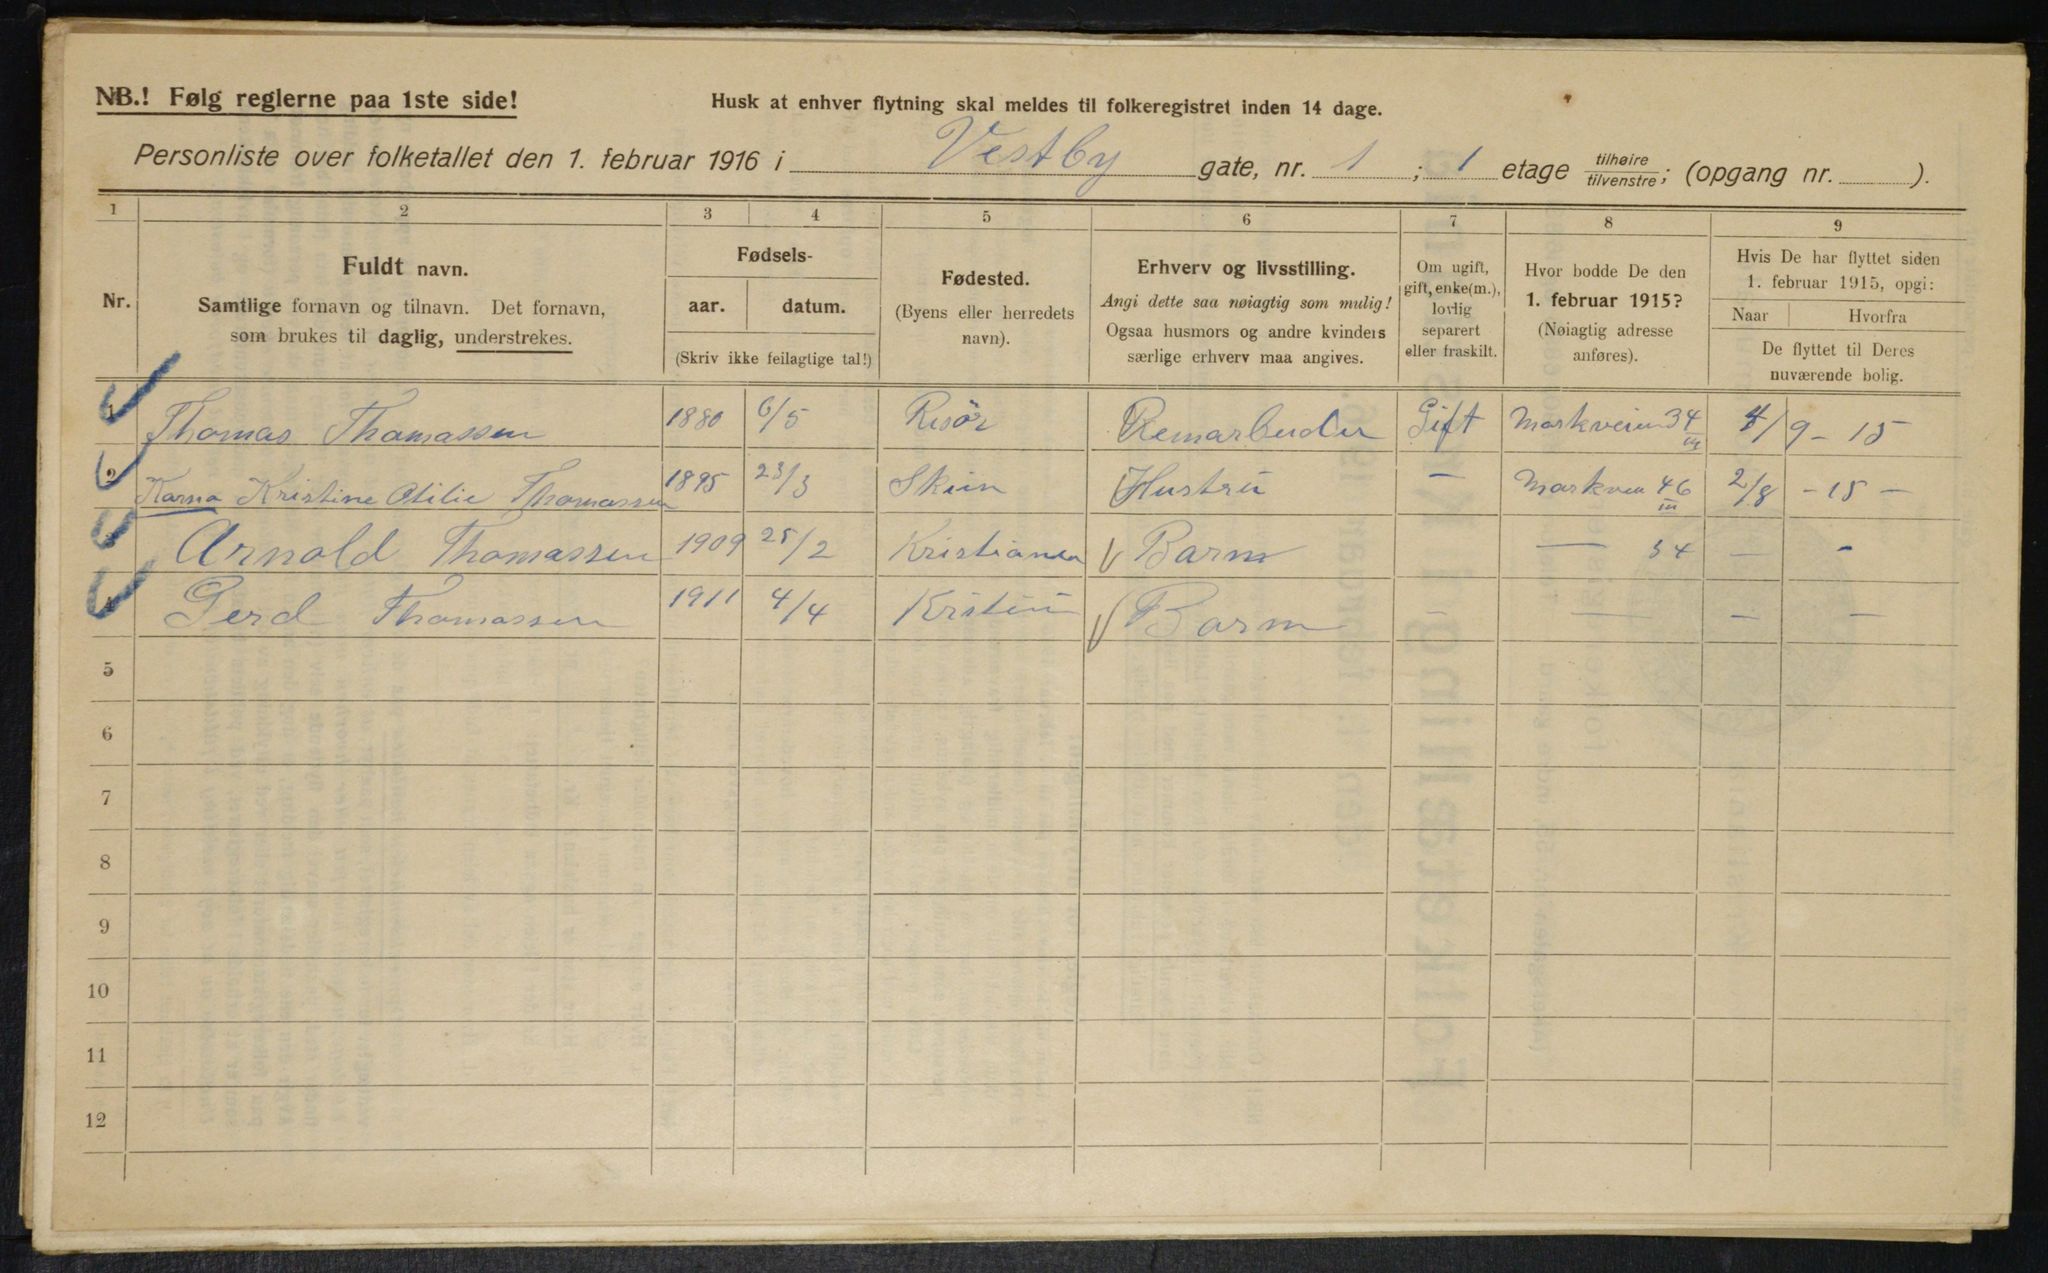 NB.! Følg reglerne paa 1ste side!
Husk at enhver flytning skal meldes til folkeregistret inden 14 dage.
Personliste over folketallet den 1. februar 1916 i Vestby gate, nr. 1 ; 1 etage tilhøire/tilvenstre; (opgang nr. ).
1 2 3 4 5 6 7 8 9
Nr.
Fuldt navn.
Samtlige fornavn og tilnavn. Det fornavn,
som brukes til daglig, understrekes.
Fødsels-
aar. datum.
(Skriv ikke feilagtige tal!)
Fødested.
(Byens eller herredets
navn).
Erhverv og livsstilling.
Angi dette saa nøiagtig som mulig!
Ogsaa husmors og andre kvinders
særlige erhverv maa angives.
Om ugift,
gift, enke(m.),
lovlig
separert
eller fraskilt.
Hvor bodde De den
1. februar 1915?
(Nøiagtig adresse
anføres).
Hvis De har flyttet siden
1. februar 1915, opgi:
Naar Hvorfra
De flyttet til Deres
nuværende bolig.
1 Thomas Thomassen 1880 6/5 Risör Remarbeider Gift Markveien 34 III 4/9 - 15
2 Karna Kristine Otilie Thomassen 1895 23/3 Skien Hustrü - Markvei 46 III 2/8 - 15 -
3 Arnold Thomassen 1909 25/2 Kristiania Barn — 34 — -
4 Gerd Thomassen 1911 4/4 Barn — — —
5
6
7
8
9
10
11
12